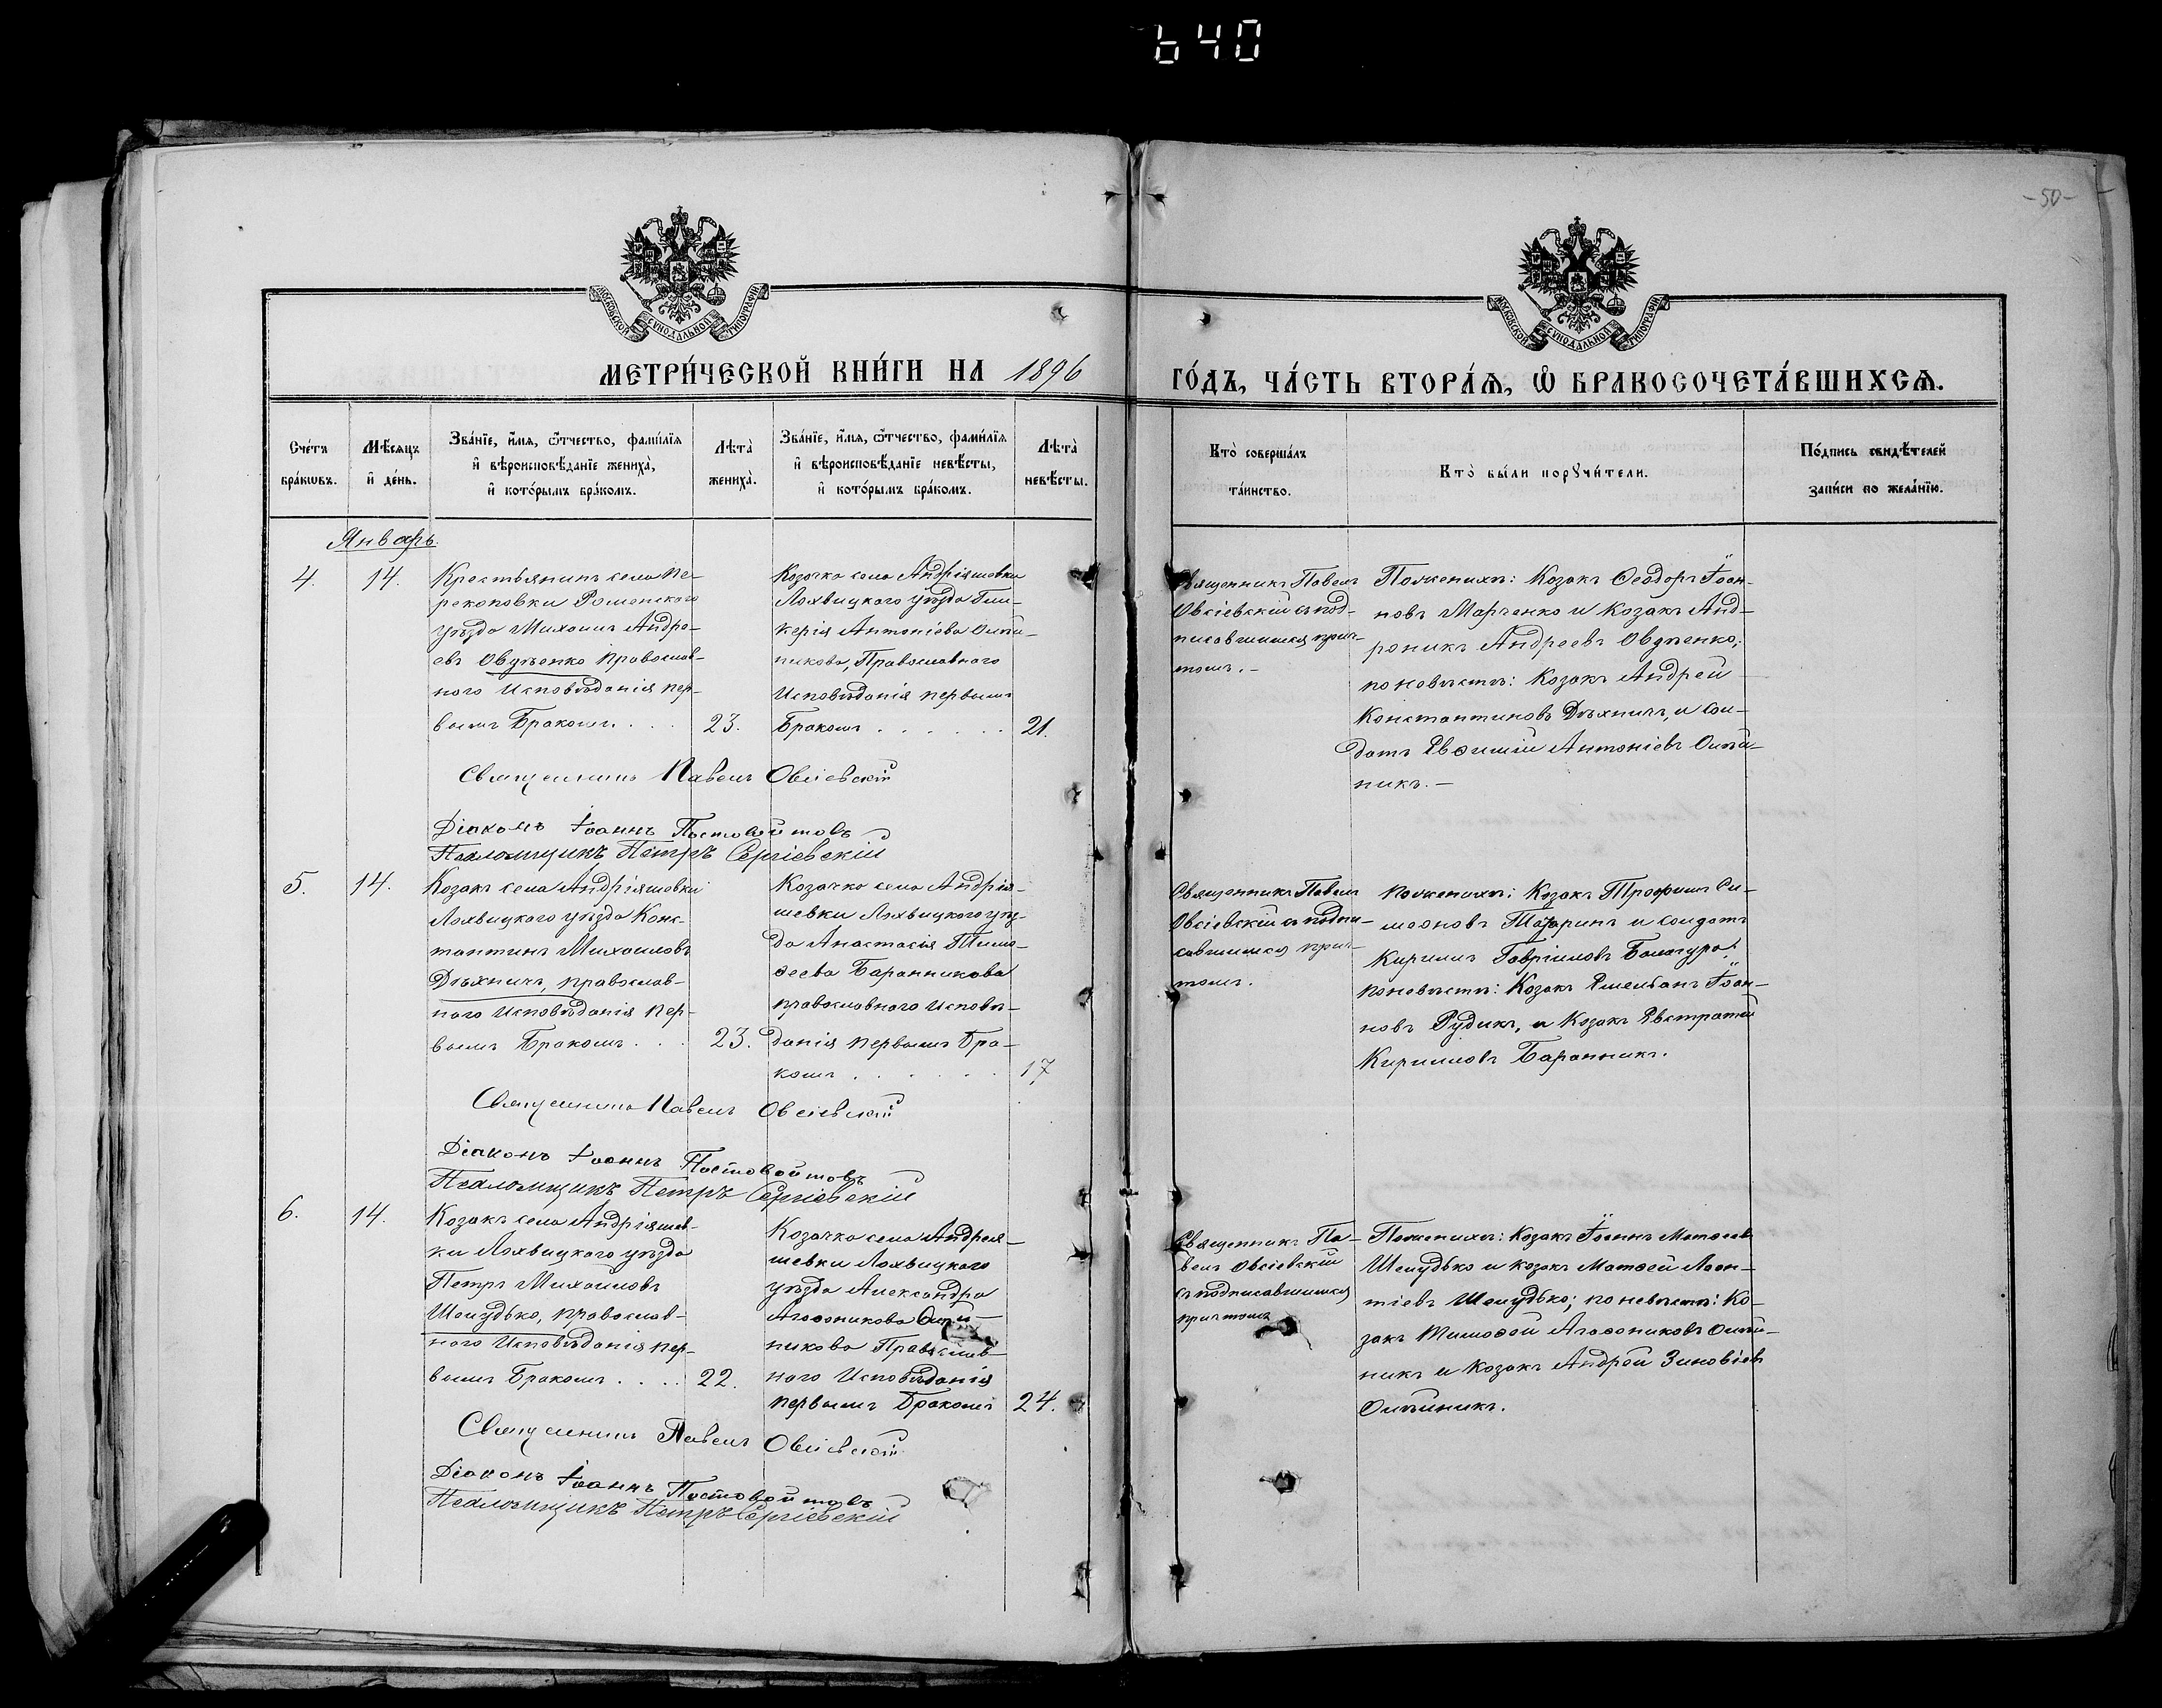 640
-50-
МОСКОВСКОЙ СѴНОДАЛЬНОЙ ТИПОГРАФІИ
МОСКОВСКОЙ СѴНОДАЛЬНОЙ ТИПОГРАФІИ
МЕТРИ́ЧЕСКОЙ КНИ́ГИ НА 1896
ГО́ДЪ, ЧА́СТЬ ВТОРА́Ѧ, Ѡ҆ БРАКОСОЧЕТА́ВШИХСѦ.
Сче́тъ
бра́кѡвъ.
Мѣ́сѧцъ
и҆ де́нь.
Зва́нїе, и҆́мѧ, ѻ҆́тчество, фамѝлїѧ
и҆ вѣроисповѣ́данїе жениха̀,
и҆ кото́рымъ бра́комъ.
Лѣта̀
жениха̀.
Зва́нїе, и҆́мѧ, ѻ҆́тчество, фамѝлїѧ
и҆ вѣроисповѣ́данїе невѣ́сты,
и҆ кото́рымъ бра́комъ.
Лѣта̀
невѣ́сты.
Кто̀ соверша́лъ
та́инство.
Кто̀ бы́ли порꙋчи́тели.
По́дпись свидѣ́телей
за́писи по жела́нїю.
Январь.
4.
14.
Крестьянинъ села Пе-
рекоповки Роменского
уѣзда Михаилъ Андре-
евъ Овдѣенко православ-
ного Исповѣданія пер-
вымъ Бракомъ. . .
23.
Козачка села Андріяшевки
Лохвицкого уѣзда Гли-
керія Антоніева Олѣй-
никова, Православного
Исповѣданія первымъ
Бракомъ . . . . . .
21.
Священникъ Павелъ
Овсіевскій съ под-
писавшимся прич-
томъ. -
По женихѣ: Козакъ Ѳеодоръ Іоан-
новъ Марченко и Козакъ Анд-
роникъ Андреевъ Овдѣенко;
по невѣстѣ: Козакъ Андрей
Константиновъ Дѣхничъ, и Сол-
датъ Евѳимій Антоніевъ Олѣй-
никъ. -
Священникъ Павелъ Овсіевскій
Діаконъ Іоаннъ Постовойтовъ
Псаломщикъ Петръ Сергіевскій
5.
14.
Козакъ села Андріяшевки
Лохвицкого уѣзда Конс-
тантинъ Михаиловъ
Дѣхничъ, православ-
ного Исповѣданія пер-
вымъ Бракомъ . . .
23.
Козачка села Андрія-
шевки Лохвицкого уѣз-
да Анастасія Тимо-
ѳеева Баранникова
православного Исповѣ-
данія первымъ Бра-
комъ . . . . . .
17
Священникъ Павелъ
Овсіевскій съ подпи-
савшимся прич-
томъ.
По женихѣ: Козакъ Трофимъ Си-
меоновъ и солдатъ
Кирилъ Гавріиловъ Балагура;
по невѣстѣ: Козакъ Емельянъ Іоан-
новъ Рудикъ, и Козакъ Евстратій
Кириловъ Баранникъ.
Священникъ Павелъ Овсіевскій
Діаконъ Іоаннъ Постовойтовъ
Псаломщикъ Петръ Сергіевскій
6.
14.
Козакъ села Андріяшев-
ки Лохвицкого уѣзда
Петръ Михаиловъ
Шелудько, православ-
ного Исповѣданія пер-
вымъ Бракомъ . . . .
22.
Козачка села Андрея-
шевки Лохвицкого
уѣзда Александра
Агаѳоникова Олѣй-
никова Православ-
ного Исповѣданія
первымъ Бракомъ
24.
Священникъ Па-
велъ Овсіевскій
съ подписавшимся
причтомъ
По женихѣ: Козакъ Іоаннъ Матѳеевъ
Шелудько и козакъ Матѳей Леон-
тіевъ Шелудько; по невѣстѣ: Ко-
закъ Тимоѳей Агаѳониковъ Олѣй-
никъ и Козакъ Андрей Зиновіевъ
Олѣйникъ.
Священникъ Павелъ Овсіевскій
Діаконъ Іоаннъ Постовойтовъ
Псаломщикъ Петръ Сергіевскій